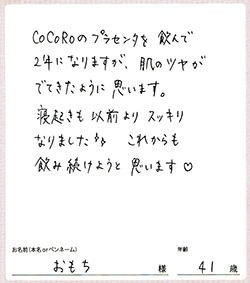 CoCoRoのプラセンタを飲んで
2年になりますが、肌のツヤが
でてきたように思います。
寝起きも以前よりスッキリ
なりました♪♪ これからも
飲み続けようと思います♡
お名前(本名orペンネーム) 年齢
おもち 様 41 歳